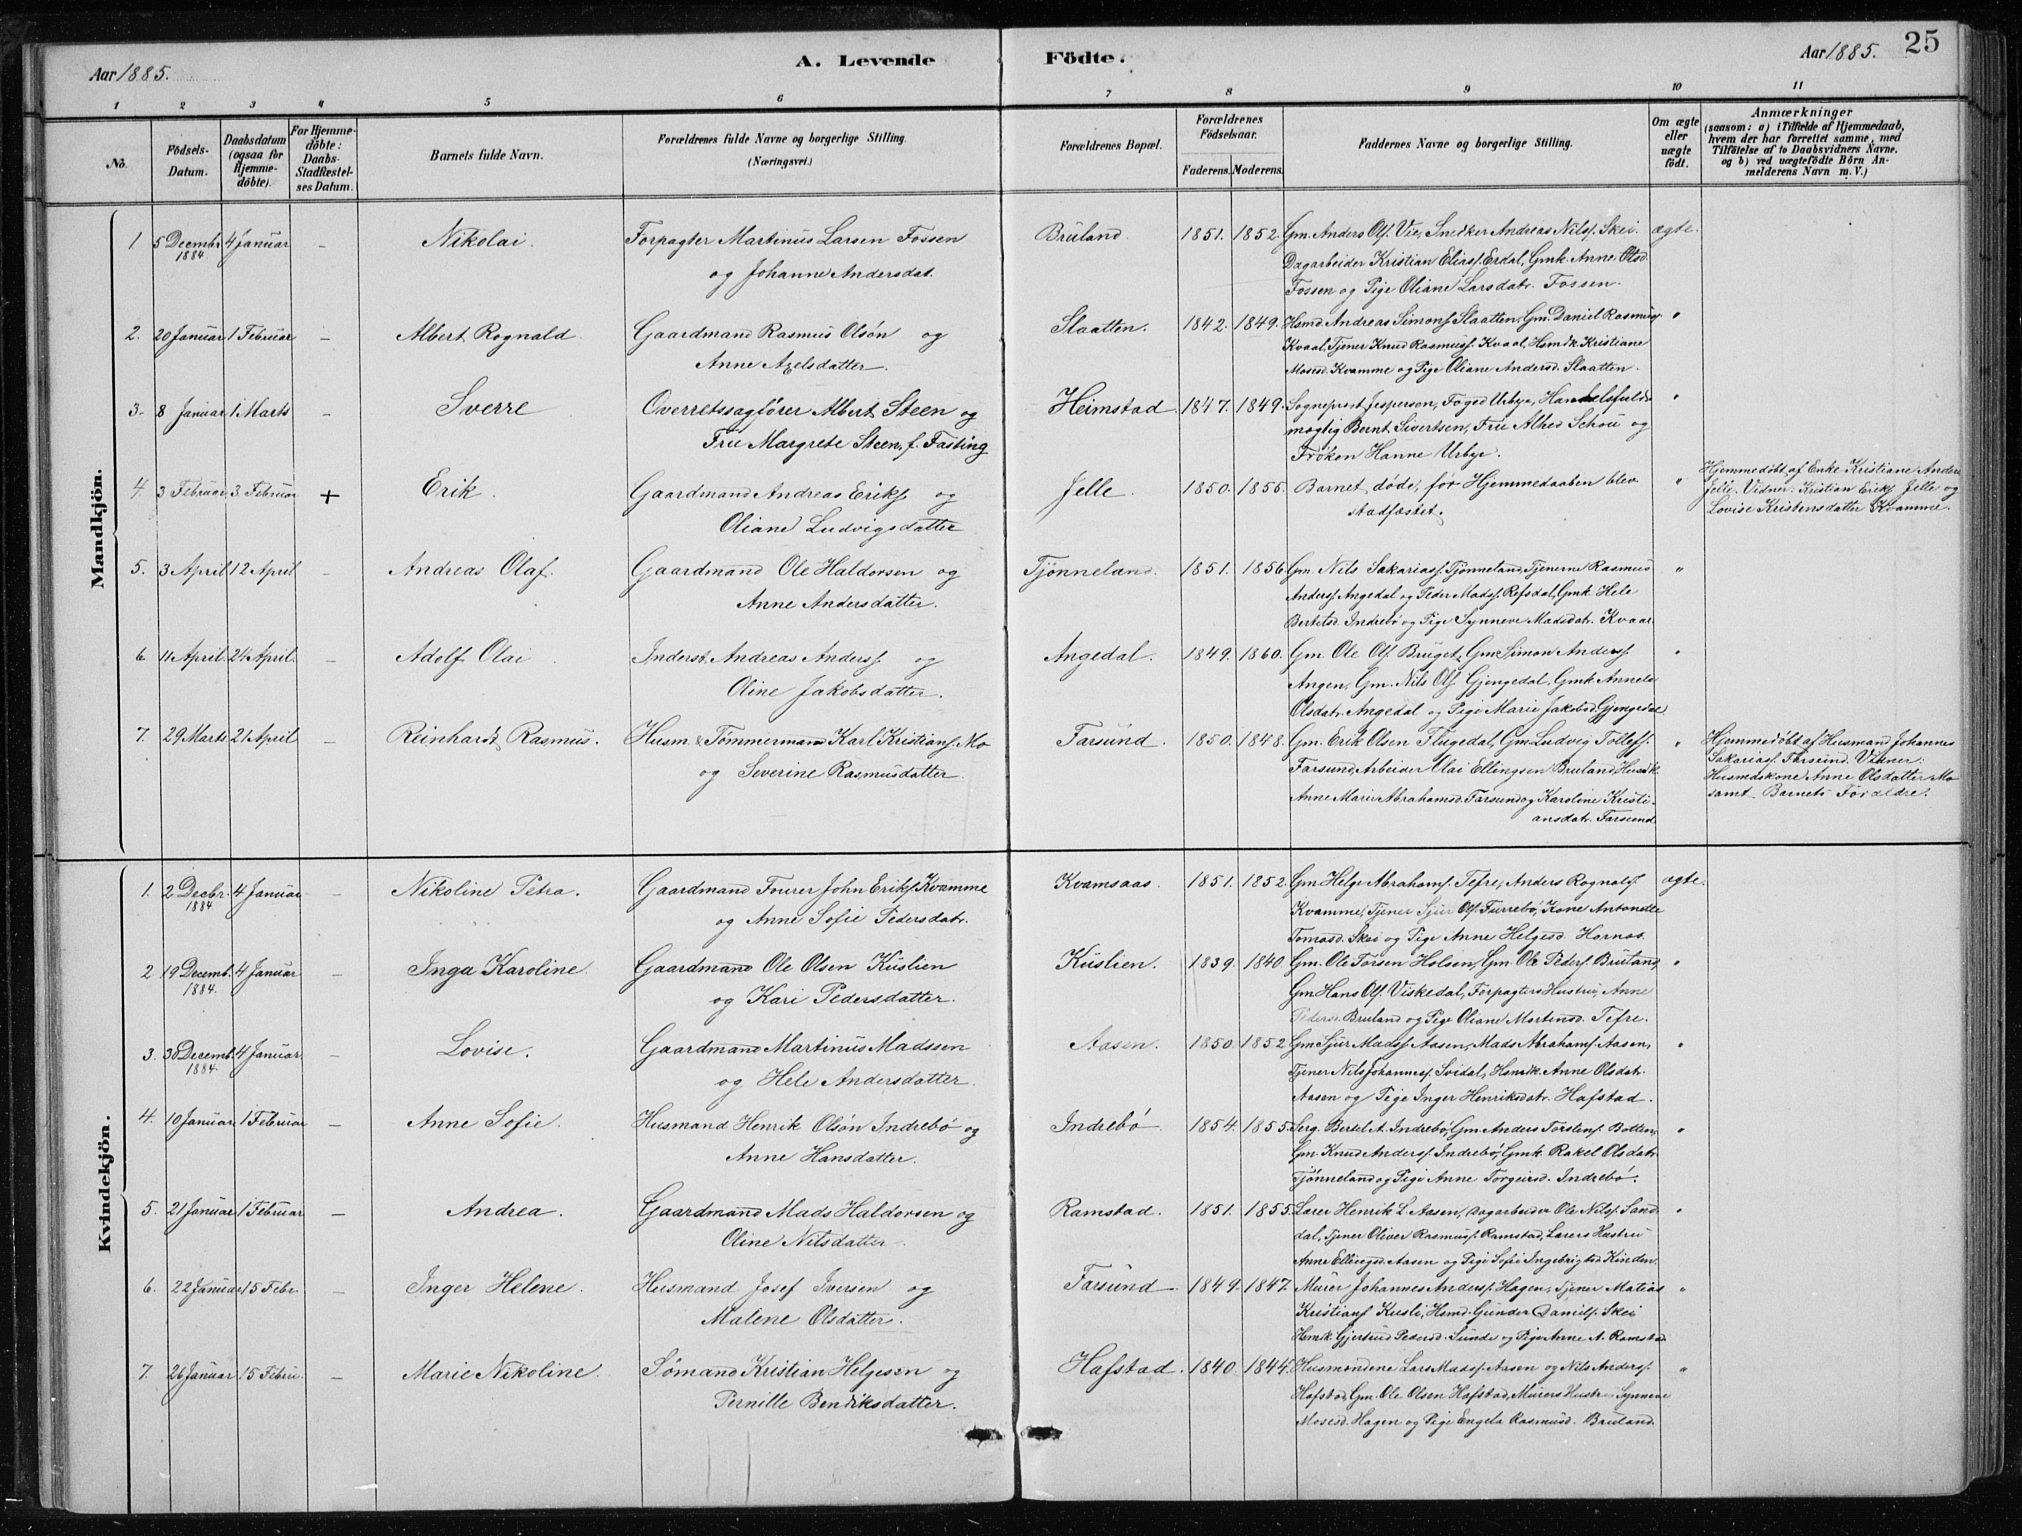 Aar 1885.
A. Levende Födte.
Aar 1885.
25
1 2 3 4 5 6 7 8 9 10 11
No.
Födsels-Datum.
Daabsdatum (ogsaa for Hjemmedöbte).
For Hjemmedöbte: Daabs-Stadfæstelses Datum.
Barnets fulde Navn.
Forældrenes fulde Navne og borgerlige Stilling. (Næringsvei.)
Forældrenes Bopæl.
Forældrenes Födselsaar.
Faderens. Moderens.
Faddernes Navne og borgerlige Stilling.
Om ægte eller uægte födt.
Anmærkninger
(saasom: a) i Tilfælde af Hjemmedaab, hvem der har forrettet samme, med Tilföielse af to Daabsvidners Navne, og b) ved uægtefödte Börn Anmelderens Navn m. V.)
Mandkjön.
1 5 Decembr 1884 4 Januar – Nikolai. Forpagter Martinus Larsen Fossen
og Johanne Andersdat.
Bruland. 1851. 1852. Gm. Anders Ols. Vie, Snedker Andreas Nilss. Skei. ægte.
Dagarbeider Kristian Eliass. Erdal, Gmk. Anne Olsd.
Fossen og Pige Oliane Larsdatr. Fossen.
2. 20 Januar 1 Februar – Albert Rognald Gaardmand Rasmus Olsön og
Anne Axelsdatter.
Slaatten. 1842. 1849. Hsmd. Andreas Simons. Slaatten, Gm. Daniel Rasmuss. "
Kvaal, Tjener Knud Rasmuss. Kvaal, Hsmdk. Kristiane
Mosesd. Kvamme og Pige Oliane Andersd. Slaatten.
3. 8 Januar 1 Marts – Sverre Overretssagförer Albert Steen og
Frue Margrete Steen, f. Fasting
Heimstad. 1847. 1849. Sogneprest Jespersen, Foged Urbye, Handelsfuld- "
mægtig Bernt Sivertsen, Frue Alhed Schou og
Fröken Hanne Urbye.
4. 3 Februar 3. Februar + Erik. Gaardmand Andreas Eriks. og
Oliane Ludvigsdatter
Jelle. 1850. 1856. Barnet döde, för Hjemmedaaben blev "
stadfæstet.
Hjemmedöbt af Enke Kristiane Anders.
Jelle. Vidner: Kristian Eriks. Jelle og
Lovise Kristensdatter Kvamme.
5. 3 April 12 April – Andreas Olaf. Gaardmand Ole Haldorsen og
Anne Andersdatter.
Tjönneland. 1851. 1856. Gm. Nils Sakariass. Tjönneland, Tjenerne Rasmus "
Anderss. Angedal og Peder Madss. Refsdal, Gmk. Hele
Bertelsd. Indrebö og Pige Synneve Madsdatr. Kvaal.
6. 11 April. 24 April. – Adolf Olai Inderst Andreas Anderss. og
Oline Jakobsdatter.
Angedal. 1849. 1860. Gm. Ole Ols. Bruget, Gm. Simon Anderss. "
Angen, Gm. Nils Ols. Gjengedal, Gmk. Annela
Olsdatr. Angedal og Pige Marie Jakobsd. Gjengedal
7. 29 Marts 21 April – Reinhardt Rasmus. Husm. & Tömmermand Karl Kristians. Mo
og Severine Rasmusdatter.
Farsund. 1850. 1848. Gm. Erik Olsen Flugedal, Gm. Ludvig Tollefs. "
Farsund, Arbeider Olai Ellingsen Bruland, Husmdk.
Anne Marie Abrahamsd. Farsund og Karoline Kristi-
ansdatr. Farsund
Hjemmedöbt af Husmand Johannes
Sakariass. Farsund. Vidner:
Husmdskone Anne Olsdatter Mo
samt Barnets Forældre.
Kvindekjön.
1. 2 Decbr. 1884 4 Januar – Nikoline Petra. Gaardmand Fourer John Eriks. Kvamme
og Anne Sofie Pedersdatr.
Kvamsaas. 1851. 1852. Gm. Helge Abrahams. Tefre, Anders Rognalds. ægte.
Kvamme, Tjener Sjur Ols. Furrebö, Kone Antonette
Tomasd. Skei og Pige Anne Helgesd. Hornas.
2 19 Decemb. 1884. 4 Januar – Inga Karoline. Gaardmand Ole Olsen Kuslien
og Kari Pedersdatter.
Kuslien. 1839. 1840. Gm. Ole Torsen Holsen, Gm. Ole Peders. Bruland, "
Gm. Hans Ols. Viskedal, Forpagters Hustru, Anne
Pedersd. Bruland og Pige Oliane Martensd. Tefre.
3. 30 Decemb. 1884. 4 Januar. – Lovise. Gaardmand Martinus Madssen
og Hele Andersdatter.
Aasen. 1850. 1852. Gm. Sjur Madss. Aasen, Mads Abrahams. Aasen, "
Tjener Nils Johanness. Svidal, Hsmdk. Anne Olsdatr.
Aasen og Pige Inger Henriksdatr. Hafstad.
4. 10 Januar 1 Februar – Anne Sofie. Husmand Henrik Olsön Indrebö og
Anne Hansdatter.
Indrebö. 1854. 1855. Serg. Bertel A. Indrebö, Gm. Anders Torstens. Botten, "
Gm. Knud Anderss. Indrebö, Gmk. Rakel Olsdatr.
Tjönneland og Pige Anne Torgersd. Indrebö.
5. 21 Januar 1 Februar – Andrea. Gaardmand Mads Haldorsen og
Oline Nilsdatter.
Ramstad. 1851. 1855. Lærer Henrik L. Aasen, Dagarbeider Ole Nilss. Sand- "
dal, Tjener Oliver Rasmuss. Ramstad, Lærers Hustru
Anne Ellingsd. Aasen og Pige Sofie Ingebrigtsd. Kinden.
6. 22 Januar 15 Febr. – Inger Helene. Husmand Josef Iversen og
Malene Olsdatter.
Farsund. 1849. 1847. Murer Johannes Anderss. Hagen, Tjener Matias "
Kristians. Kusli, Hsmd. Gunder Daniels. Skei
Hsmk. Gjertrud Pedersd. Sunde og Pige Anne A. Ramstad
7. 26 Januar 15 Febru. – Marie Nikoline. Sömand Kristian Helgesen og
Pernille Bendiksdatter.
Hafstad. 1840. 1844. Husmændene Lars Madss. Aasen og Nils Anderss. "
Hafstad, Gm. Ole Olsen Hafstad, Murers Hustru Synneve
Mosesd. Hagen og Pige Engela Rasmusd. Bruland.